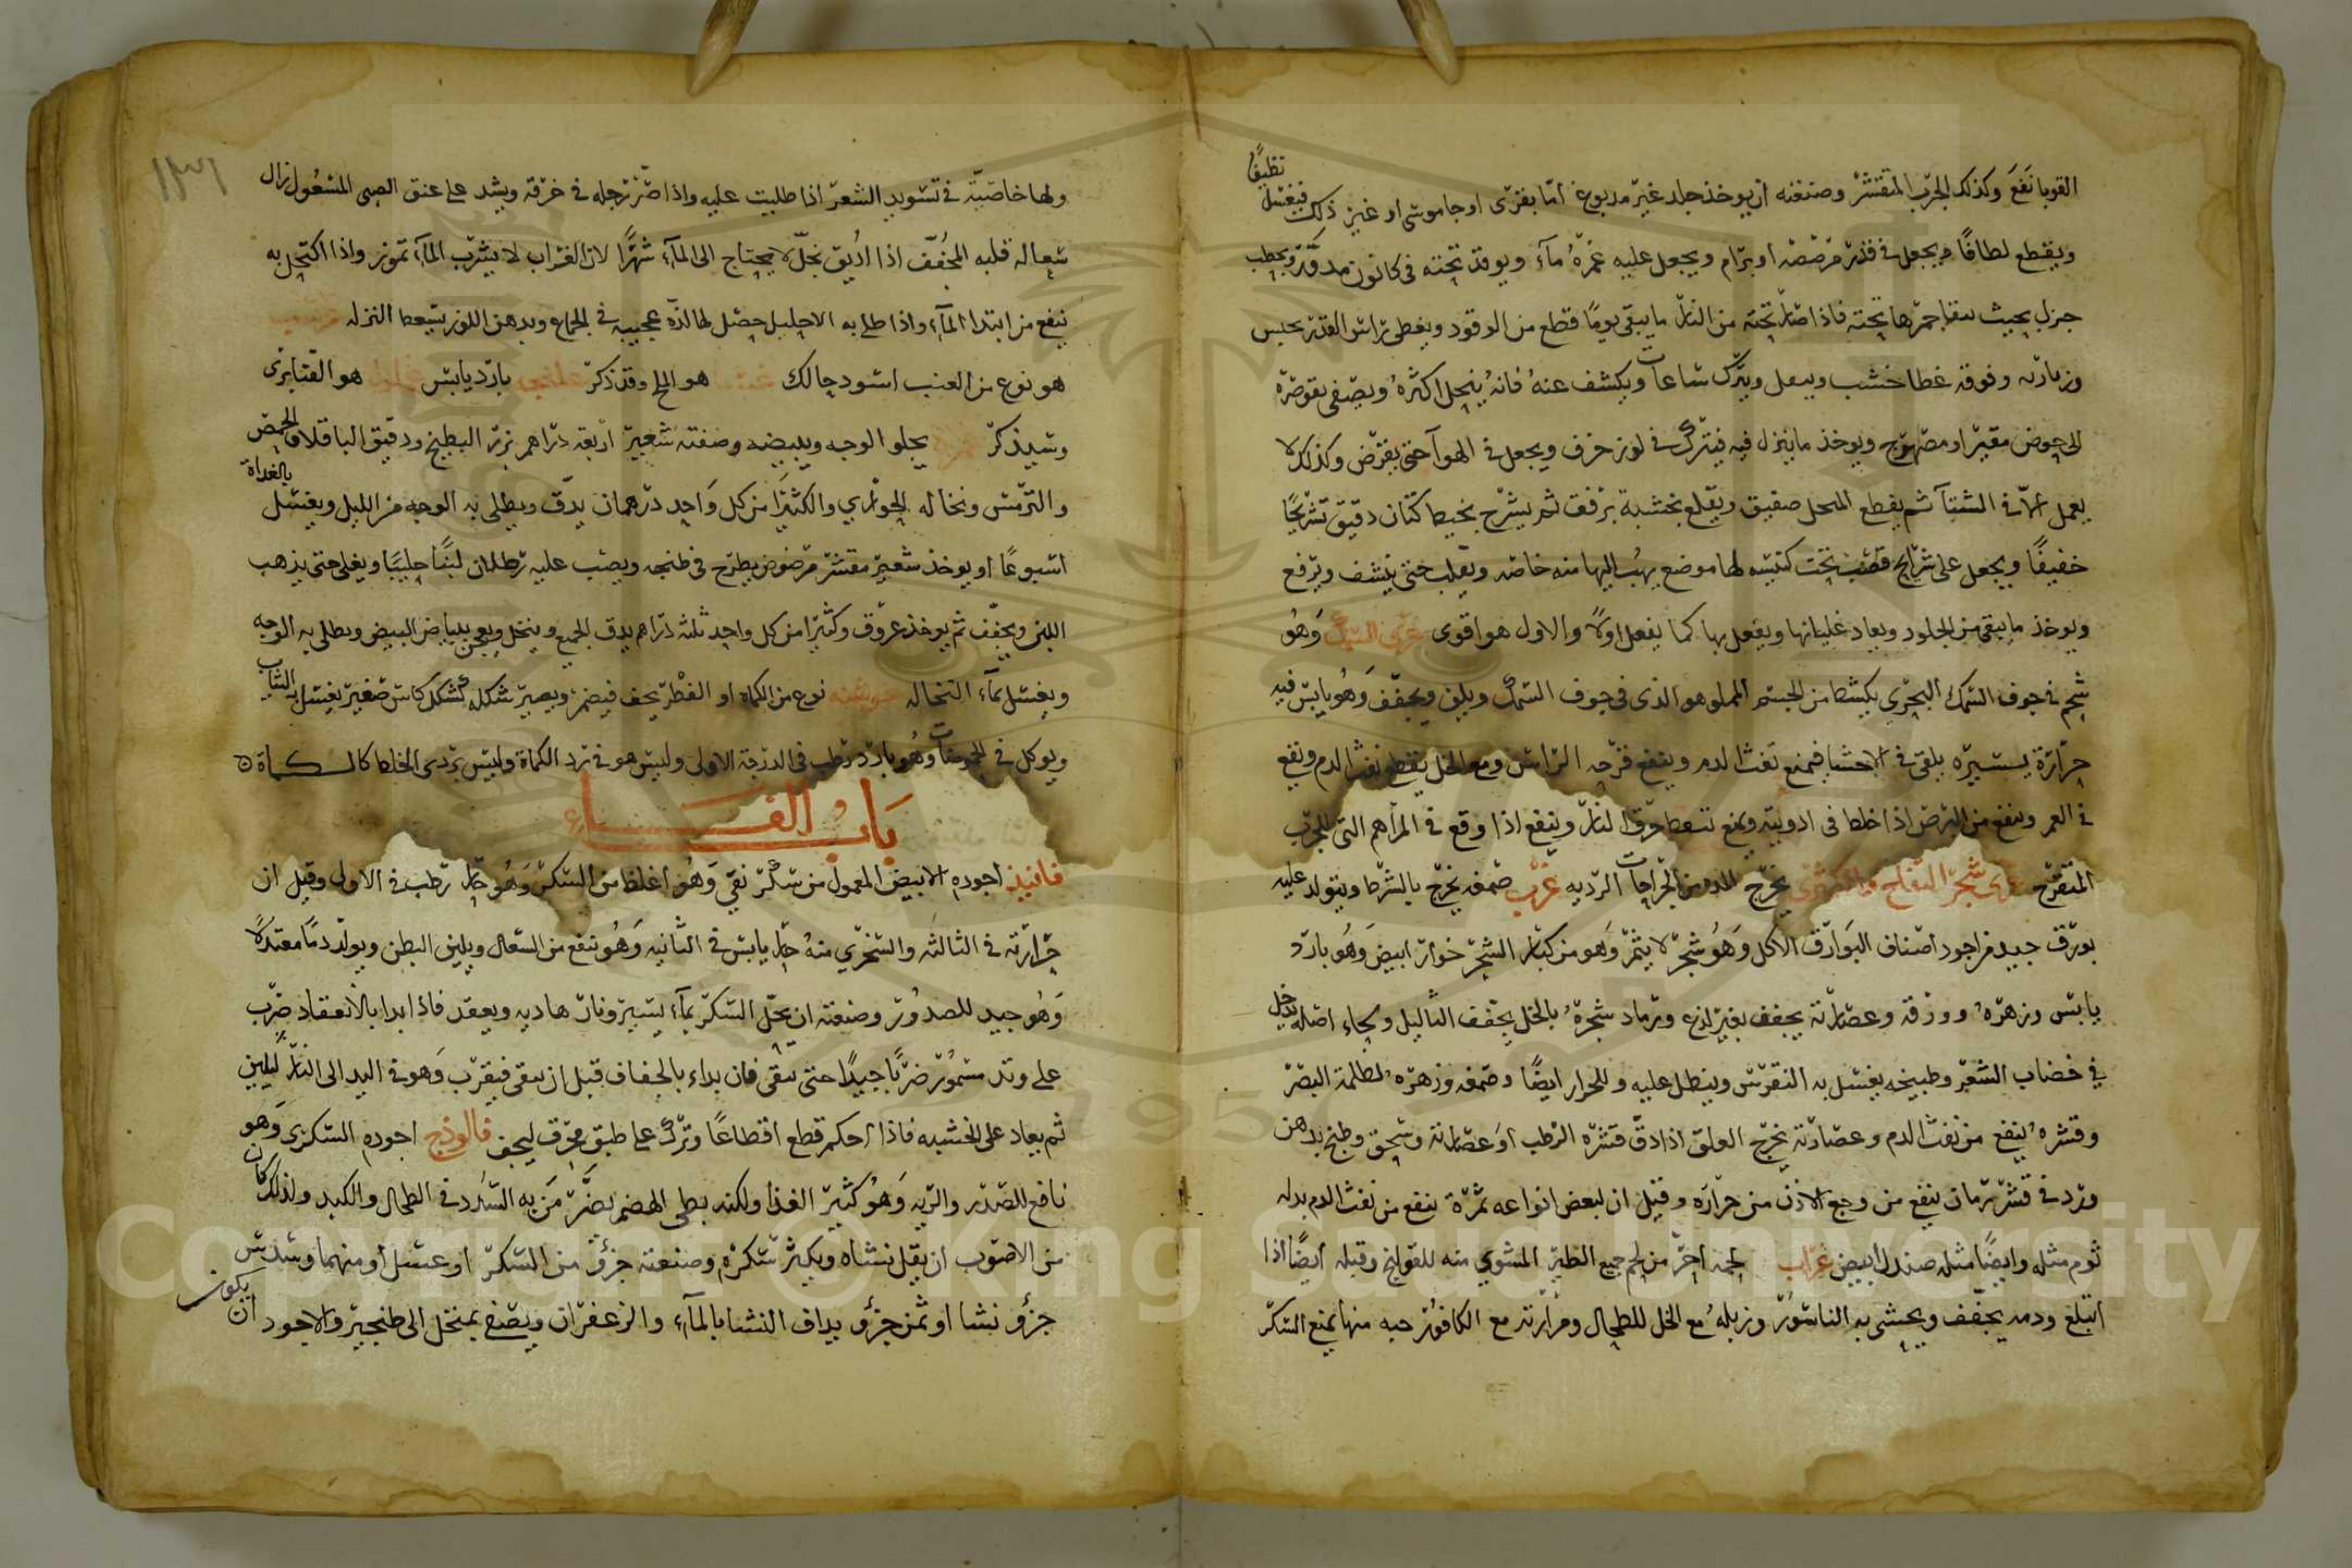 القوبا نفع وكذلك الجرب المتقشر وصنعته ان يوخذ جلد غير مدبوغ اما بقرى او جاموسى او غير ذلك فيغسل نظيفًا
ويقطع لطافًا ويجعل فى قدر مرصصه او برام ويجعل عليه غمره مآء ويوقد تحته فى كانون مدور بحطب
جزل بحيث يبقا جمرها تحته فاذا صار تحته من النار ما يبقى يومًا قطع من الوقود ويغطى راس القدر بخيش
وفوقه غطا خشب ويترك ساعات ويكشف عنه فانه ينحل اكثره ويصفى بقوصره
الى حوض مقير او مصهرج ويوخذ ما ينزل فيه فيترك فى خزف ويجعل فى الهوآ حتى يقرض وكذلك لا
يعمل الا فى الشتآ ثم يقطع صفيق ويقلع بخشبة برفق ثم يشرح بخيط كتان دقيق تشريحًا
خفيفًا ويجعل على شرايح قصب تحت لها موضع يهب اليها منه خاصه ويقلب حتى ينشف ويرفع
ويوخذ ما يبقى من الجلود ويعاد غليانها ويفعل بها كما يفعل اولًا والاول هو اقوى غرى السمك وهو
شحم فى جوف السمك البحرى يكشط من الجسم المملو هو الذى فى جوف السمك ويلين ويجفف وهو يابس فيه
حرارة يسيره يلقى فى الاحشا فيمنع نفث الدم وينفع قرحه الراس ومع الخل يقطع نفث الدم وينفع
فى العمر وينفع من البرص اذا خلط فى ادويته ويمنع تنفط حرق النار وينفع اذا وقع فى المراهم التى للجرب
المتقرح غرى شجر التفاح والكمثرى يخرج المده من الجراحات الرديه غرب صمغه يخرج بالشرط ويتولد عليه
بورق جيد من اجود اصناف البوارق الاكل وهو شجر لا يثمر وهو من كبار الشجر خوار ابيض وهو بارد
يابس وزهره وورقه وعصارته يجفف بغير لذع ورماد شجره بالخل يجفف الثاليل ولحاء اصله يدخل
فى خضاب الشعر وطبيخه يغسل به النقرس وينطل عليه وللحرار ايضًا وصمغه وزهره لظلمة البصر
وقشره ينفع من نفث الدم وعصارته تخرج العلق اذا دق قشره الرطب او عصارته وسحق وطبخ بدهن
ورد فى قشر رمان ينفع من وجع الاذن من حراره وقيل ان لبعض انواعه ثمرة ينفع من نفث الدم بدله
ثوم مثله وايضًا مثله صندل ابيض غراب لحمه احر من لحم جميع الطير المشوى منه للقولنج وقيله ايضًا اذا
ابتلع ودمه يجفف ويحشى به الناسور وزبله مع الخل للطحال ومرارته مع الكافور حبه منها تمنع السكر
١٣١
ولها خاصية فى تسويد الشعر اذا طليت عليه واذا صر رجله فى خرقه ويشد على عنق الصبى المسعول زال
سعاله قلبه المجفف اذا اديق بخل لا يحتاج الى المآء شهرًا لان الغراب لا يشرب المآء تموز واذا اكتحل به
نفع من ابتدا المآء واذا طلى به الاحليل حصل لها لذة عجيبه فى الجماع وبدهن اللوز يسعط النزله غربيب
هو نوع من العنب اسود حالك هو الملح وقد ذكر بارد يابس هو القنابرى
وسيذكر غمره يجلو الوجه ويبيضه وصفته شعير اربعة دراهم بزر البطيخ ودقيق الباقلا والحمص
والترمس ونخاله الحوارى والكثيرا من كل واحد درهمان يدق ويطلى به الوجه من الليل ويغسل بالغداة
اسبوعًا او يوخذ شعير مقشر مرضوض يطرح فى طنجه ويصب عليه رطلان لبنًا حليبًا ويغلى حتى يذهب
اللبن ويجفف ثم يوخذ عروق وكثيرا من كل واحد ثلثه دراهم يدق الجميع وينخل ويعجن ببياض البيض ويطلى به الوجه
ويغسل بمآء النخاله غوشنه نوع من الكماه او الفطر يجف فيضمر ويصير شكله كشكل كاس صغير يغسل به الثياب
ويوكل فى الحموضات وهو بارد رطب فى الدرجة الاولى وليس هو فى برد الكماة وليس بردى الخلط كالكماة ه
باب الفاء
فانيذ اجوده الابيض المعمول من سكر نقى وهو اغلظ من السكر وهو حار رطب فى الاولى وقيل ان
حرارته فى الثالثه والسنجرى منه حار يابس فى الثانيه وهو نافع من السعال ويلين البطن ويولد دمًا معتدلًا
وهو جيد للصدور وصنعته ان يحل السكر بمآء يسير ونار هاديه ويعقد فاذا ابدا بالانعقاد ضرب
على وتد مسمور ضربًا جيدًا حتى ينقى فان بداء بالجفاف قبل ان ينقى فيقرب وهو فى اليد الى النار ليلين
ثم يعاد على الخشبه فاذا احكم قطع اقطاعًا وترك على طبق ليجف فالوذج اجوده السكرى وهو
نافع للصدر والريه وهو كثير الغذا ولكنه بطى الهضم يضر من به السدد فى الطحال والكبد ولذلك كان
من الاصوب ان يقل نشاه ويكثر سكره وصنعته جزؤ من السكر او عسل او منهما وسدس
جزؤ نشا او ثمن جزؤ يداف النشا بالمآء والزعفران ويصفى بمنخل الى طنجير والاجود ان
يكون
Copyright © King Saud University
1957